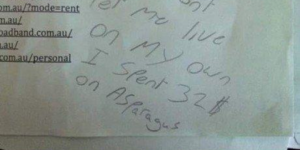 om.au/?mode=rent
m.au/
oadband.com.au/
.au/
.com.au/personal
let me live
on my own
I spent 32$
on Asparagus